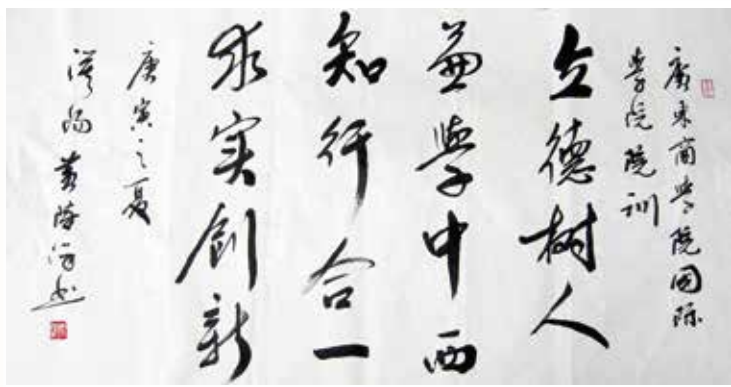 廣東商學院国际
學院院训
立德树人
兼學中西
知行合一
求实創新
庚寅之夏